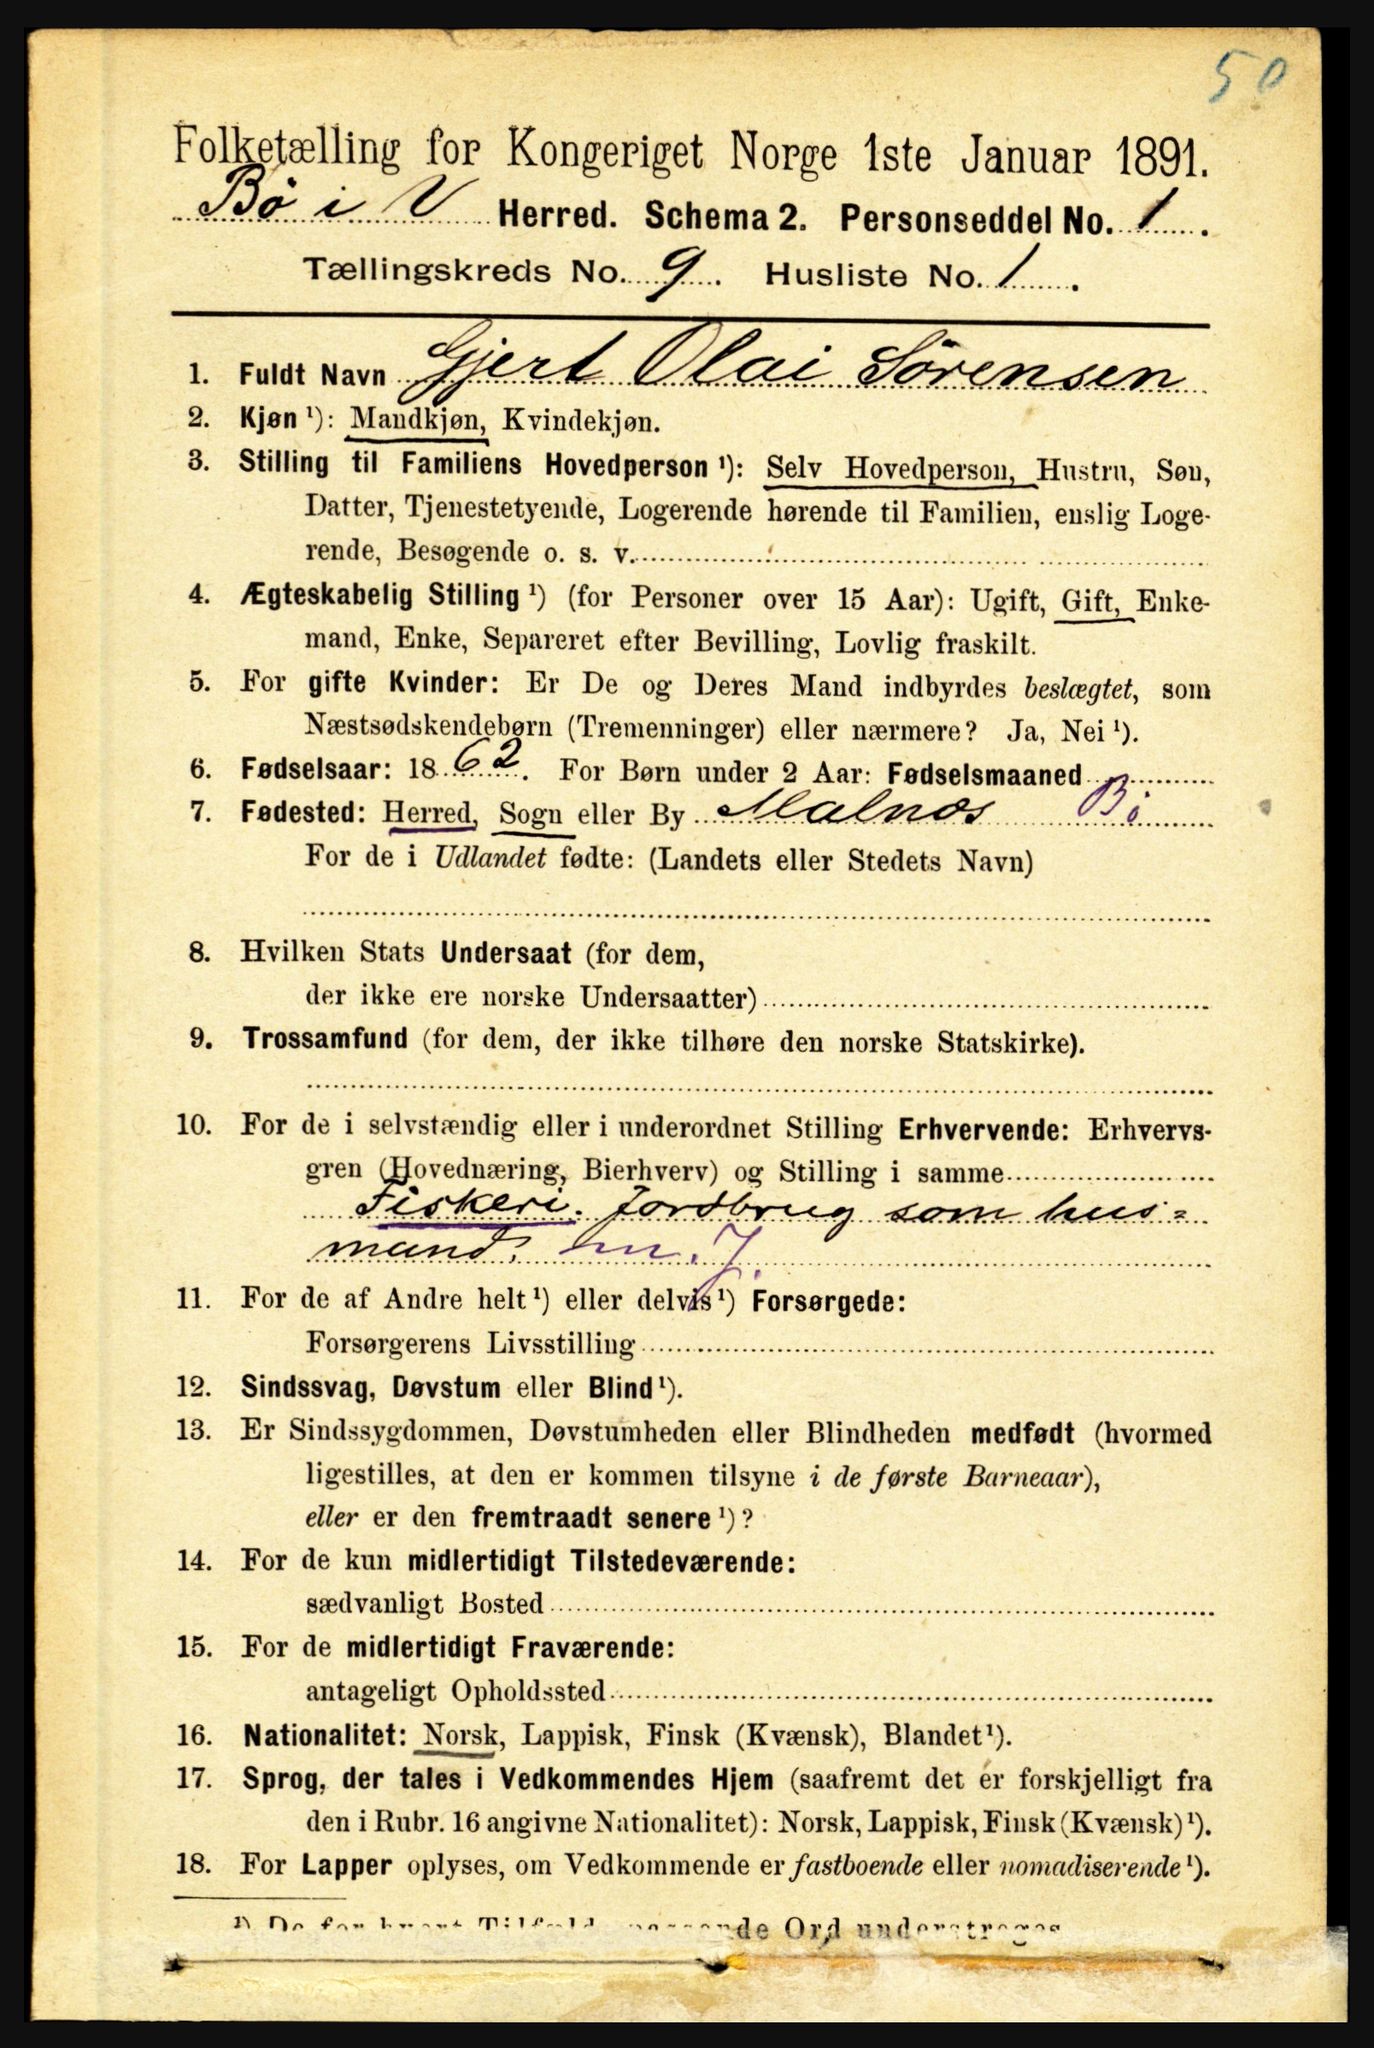 50
Folketælling for Kongeriget Norge 1ste Januar 1891.
Bö i V Herred. Schema 2. Personseddel No. 1.
Tællingskreds No. 9. Husliste No. 1.
1. Fuldt Navn Gjert Olai Sörensen
2. Kjøn ¹): Mandkjøn, Kvindekjøn.
3. Stilling til Familiens Hovedperson ¹): Selv Hovedperson, Hustru, Søn,
Datter, Tjenestetyende, Logerende hørende til Familien, enslig Loge-
rende, Besøgende o. s. v.
4. Ægteskabelig Stilling ¹) (for Personer over 15 Aar): Ugift, Gift, Enke-
mand, Enke, Separeret efter Bevilling, Lovlig fraskilt.
5. For gifte Kvinder: Er De og Deres Mand indbyrdes beslægtet, som
Næstsødskendebørn (Tremenninger) eller nærmere? Ja, Nei ¹).
6. Fødselsaar: 1862. For Børn under 2 Aar: Fødselsmaaned
7. Fødested: Herred, Sogn eller By Malnæs Bö
For de i Udlandet fødte: (Landets eller Stedets Navn)
8. Hvilken Stats Undersaat (for dem,
der ikke ere norske Undersaatter)
9. Trossamfund (for dem, der ikke tilhøre den norske Statskirke).
10. For de i selvstændig eller i underordnet Stilling Erhvervende: Erhvervs-
gren (Hovednæring, Bierhverv) og Stilling i samme
Fiskeri. Jordbrug som hus=
mand. m. J.
11. For de af Andre helt ¹) eller delvis ¹) Forsørgede:
Forsørgerens Livsstilling
12. Sindssvag, Døvstum eller Blind ¹).
13. Er Sindssygdommen, Døvstumheden eller Blindheden medfødt (hvormed
ligestilles, at den er kommen tilsyne i de første Barneaar),
eller er den fremtraadt senere ¹)?
14. For de kun midlertidigt Tilstedeværende:
sædvanligt Bosted
15. For de midlertidigt Fraværende:
antageligt Opholdssted
16. Nationalitet: Norsk, Lappisk, Finsk (Kvænsk), Blandet ¹).
17. Sprog, der tales i Vedkommendes Hjem (saafremt det er forskjelligt fra
den i Rubr. 16 angivne Nationalitet): Norsk, Lappisk, Finsk (Kvænsk) ¹).
18. For Lapper oplyses, om Vedkommende er fastboende eller nomadiserende ¹).
¹) De for hvert Tilfælde passende Ord understreges